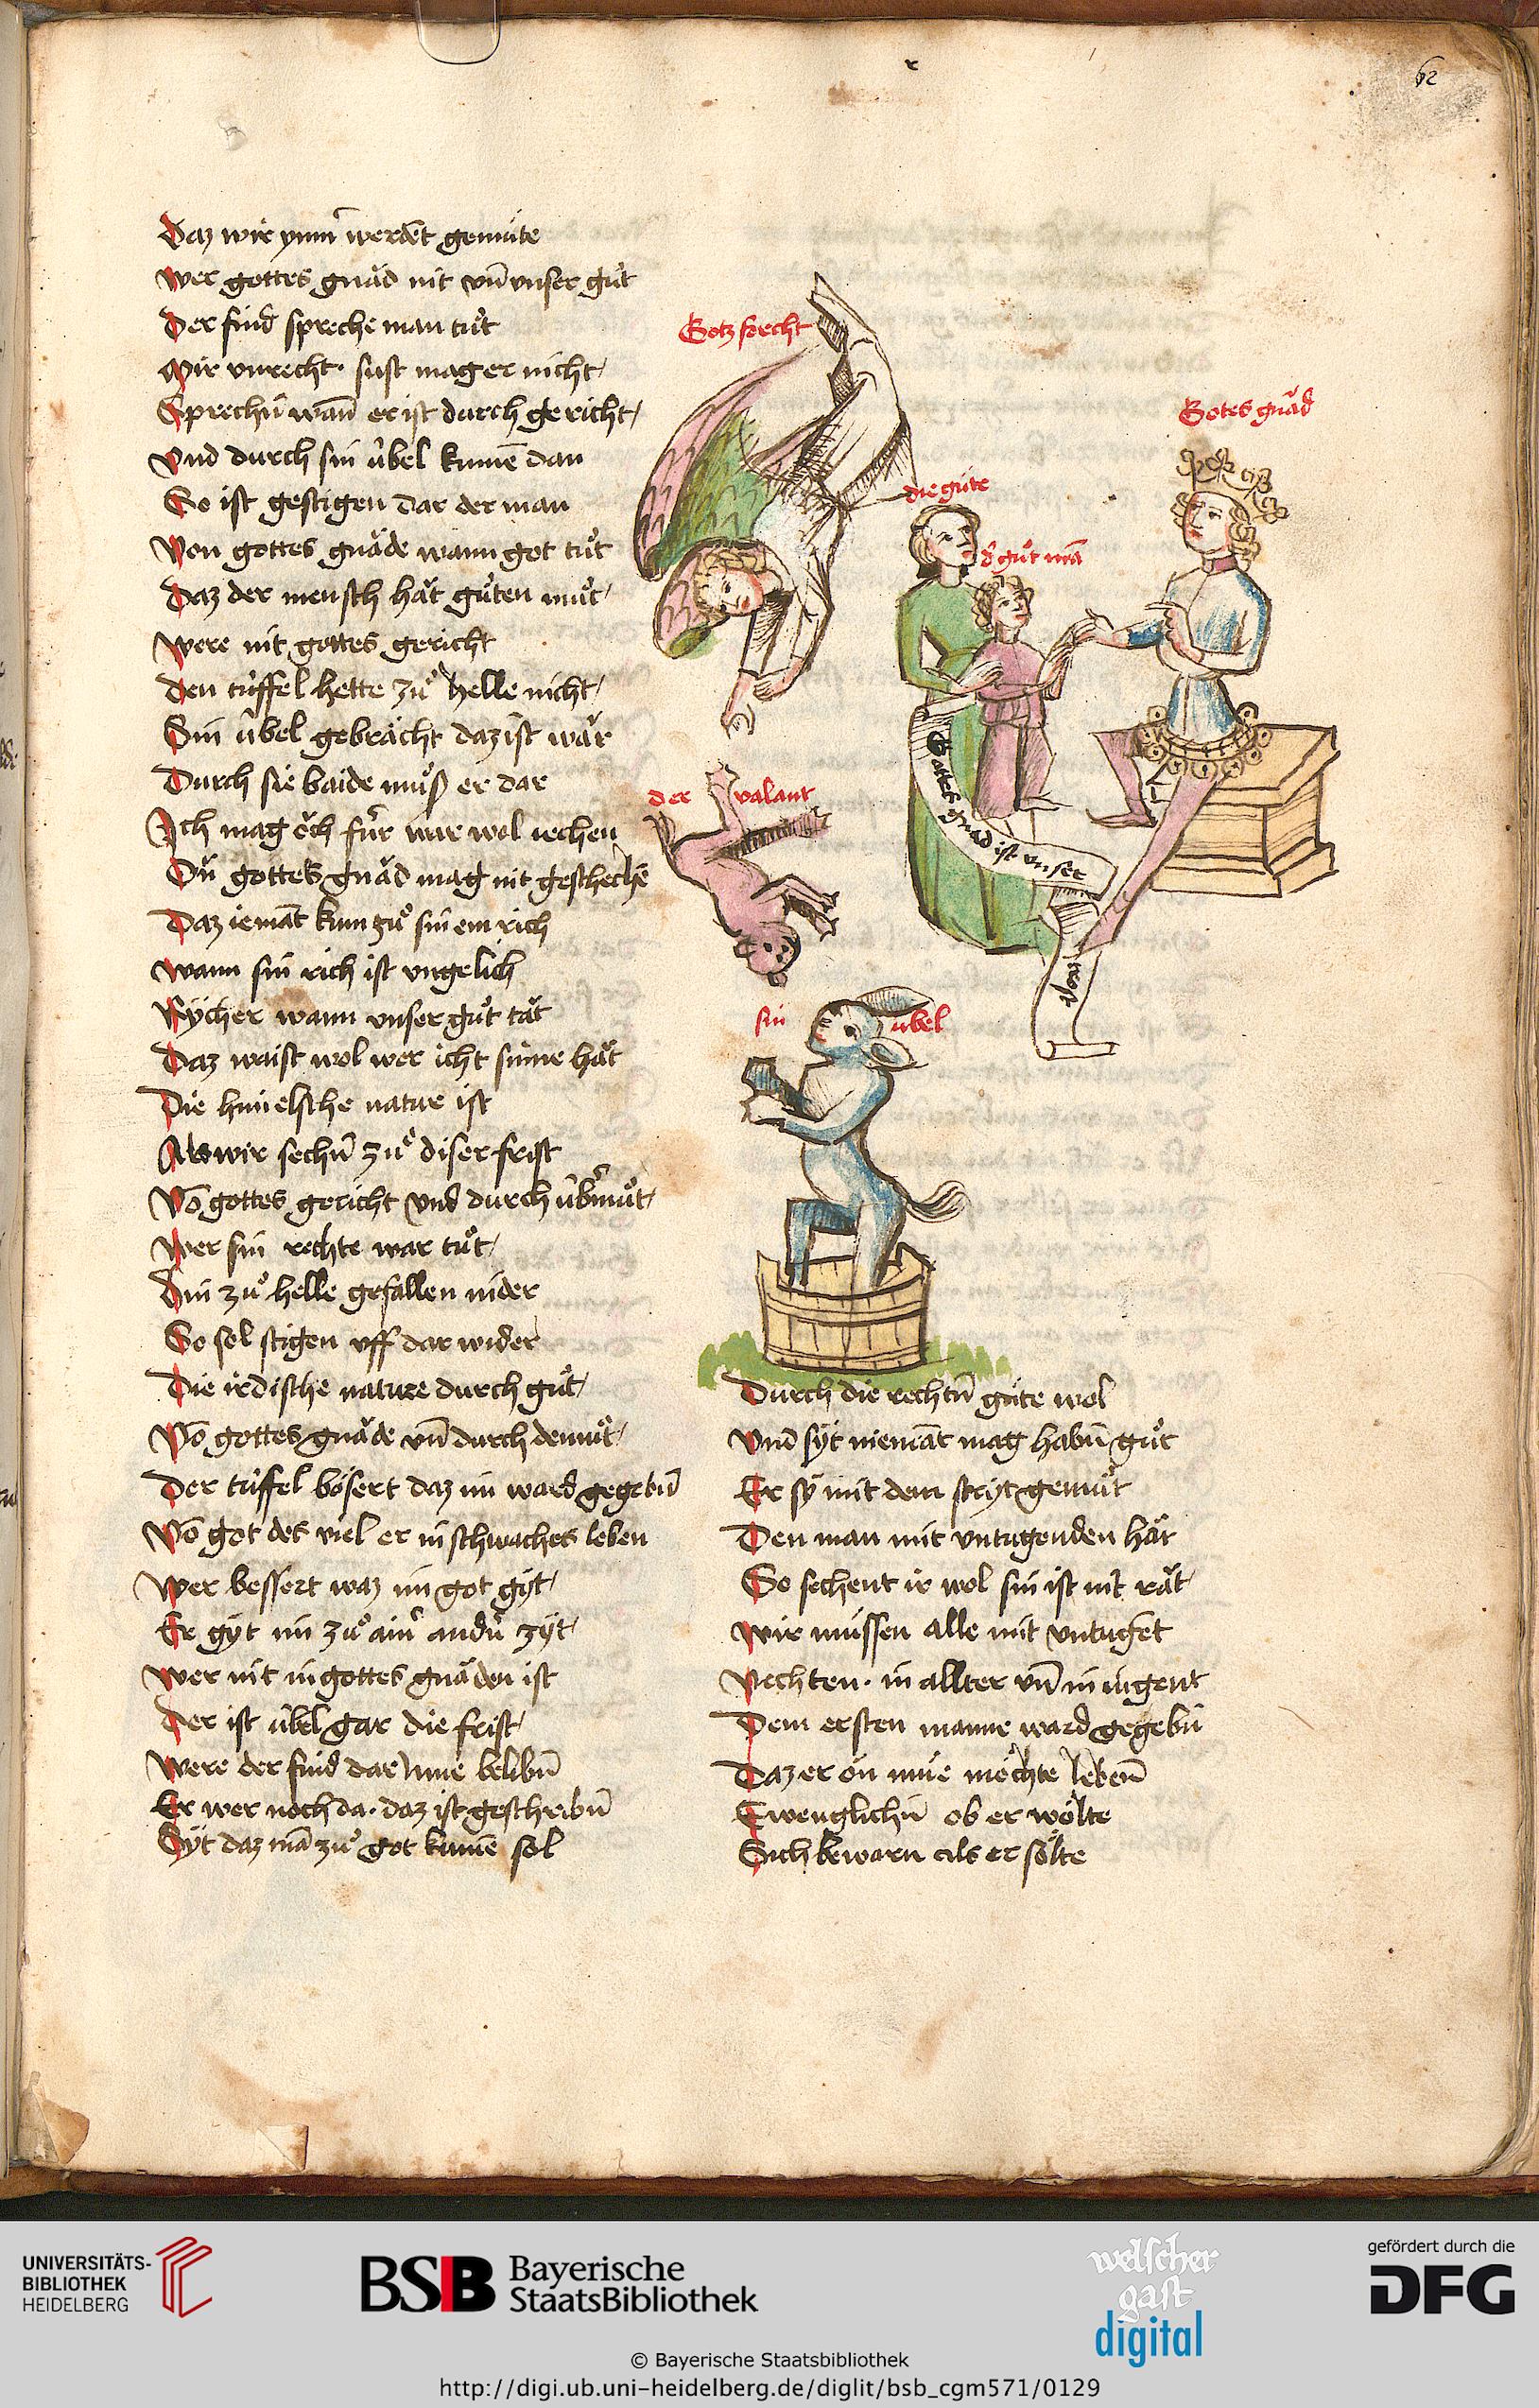 62
Daz wir ymm̄ werdēt gemüte
Wer gottes gnǎd nit vn̄ vnser gůt
Der find spreche man tůt
Mir vnrecht · sust mag er nicht
Sprechn̄ wan̄ er ist durch gericht
Vnd durch sin übel kumē dan
So ist gestigen dar der man
Von gottes gnǎde wann got tůt
Daz der mensch hǎt gůten můt
Were nit gottes gericht
Den tüffel hette zů helle nicht
Sin übel gebrǎcht daz ist wǎr
Durch sie baide můß er dar
Ich mag ǒch für war wol iechen
Dů gottes gnǎd mag nit geschechē
Daz iemāt kum zů sinem rich
Wann sin rich ist vngelich
Rycher wann vnser gůt tǎt
Daz waist wol wer icht sinne hǎt
Die himelsche nature ist
Als wir sechn̄ zů diser frist
Vō gottes gericht vnd durch üb̄můt
Wer sin rechte war tůt
Hin zů helle gefallen nider
So sol stigen vff dar wider
Die irdische nature durch gůt
Vō gottes gnǎde vn̄ durch demůt
Der tüffel bösert daz im ward gegebn̄
Vō got des viel er in schwaches leben
Wer bessert waz im got gyt
Er gyt im zů ain̄ andn̄ zyt
Wer nit in gottes gnǎden ist
Der ist übel gar die frist
Were der find dar Inne belibn̄
Er wer noch da · daz ist geschribn̄
Syt daz mā zů got kumē sol
Gotz forecht
Gotes gnǎd
die güte
d' gůt mā
Gottes gnad ist vnser
der valant
sin übel
Durch die rechtn̄ güte wol
Vnd syt niemāt mag habn̄ gůt
Er sy mit dem stryt gemůt
Den man mit vntugenden hǎt
So sechent ir wol sin ist nit rǎt
Wir müssen alle mit vntuget
Vechten · in allter vn̄ in iugent
Dem ersten manne ward gegebn̄
Daz er on müe möchte lebenn̄
Ewenglichn̄ ob er wölte
Sich bewarn als er sölte
UNIVERSITÄTS-
BIBLIOTHEK
HEIDELBERG
BSB Bayerische
StaatsBibliothek
welscher
gast
digital
gefördert durch die
DFG
© Bayerische Staatsbibliothek
http://digi.ub.uni-heidelberg.de/diglit/bsb_cgm571/0129